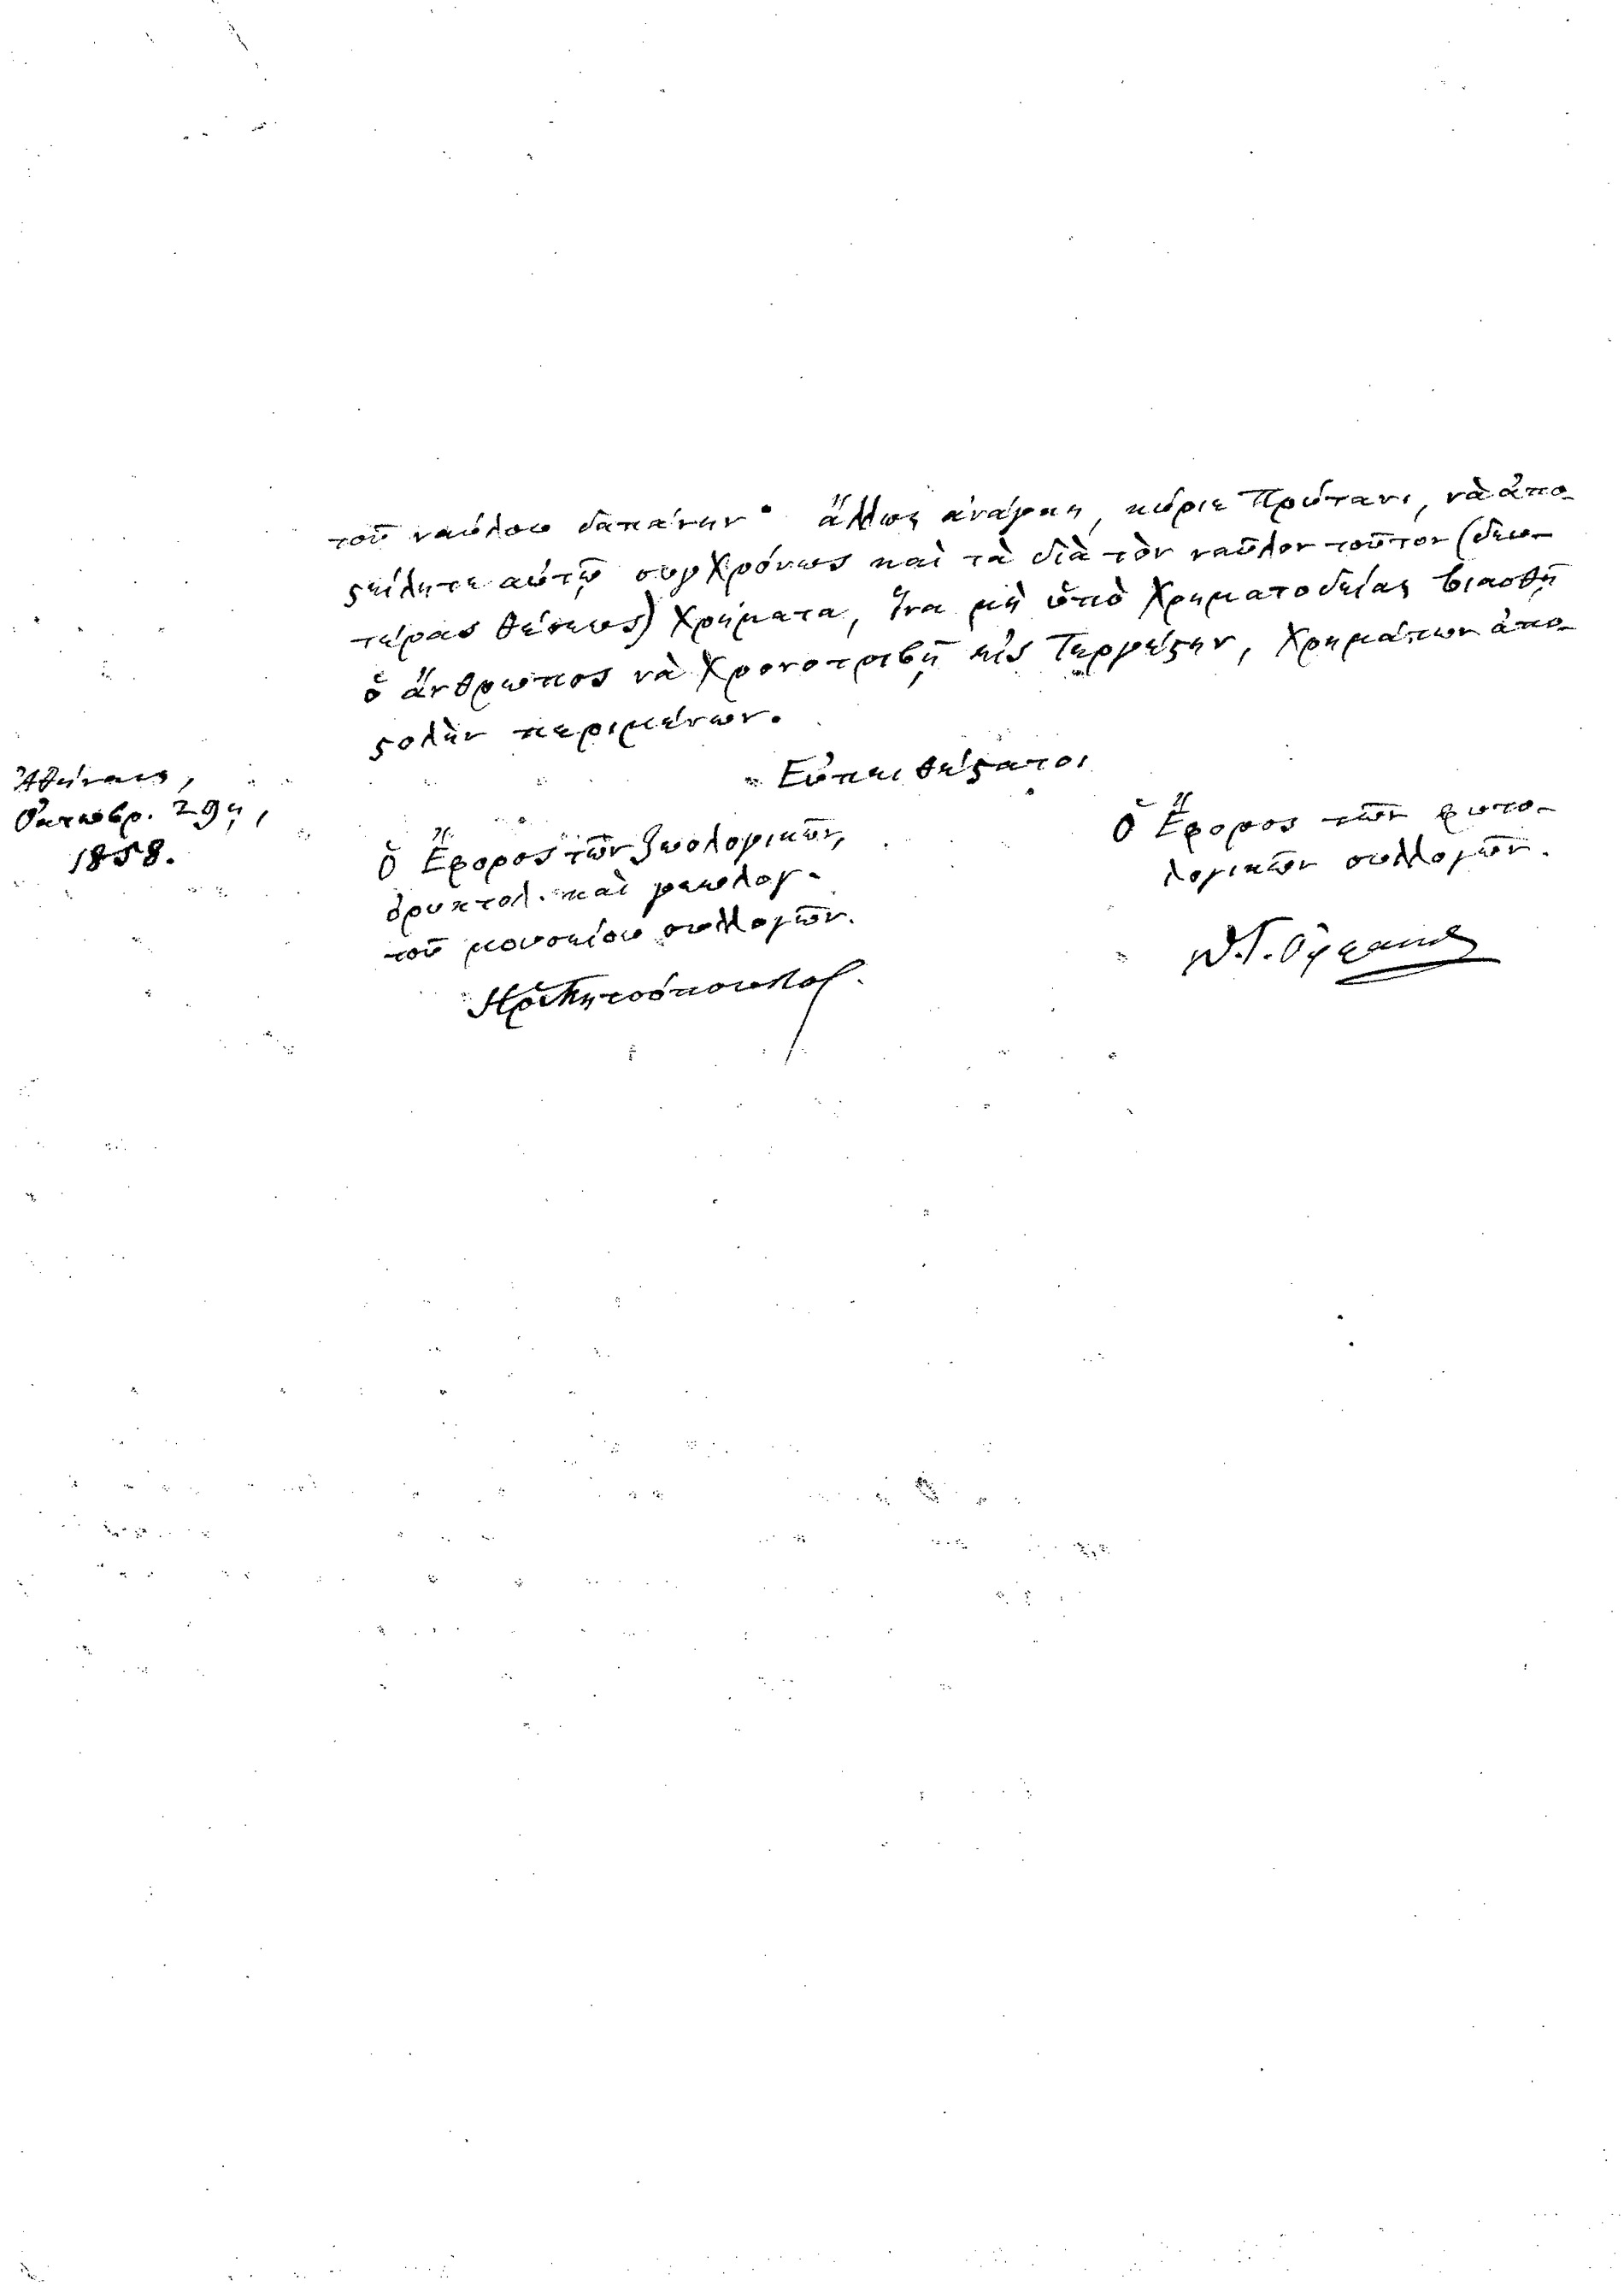 τοῦ ναύλου δαπάνην· ἄλλως ἀνάγκη, κύριε Πρύτανι, νὰ ἀπο-
ϛείλητε αὐτῷ συγχρόνως καὶ τὰ διὰ τὸν ναῦλον τοῦτον (δευ-
τέρας θέσεως) χρήματα, ἵνα μὴ ὑπὸ χρηματοδείας βιασθῇ
ὁ ἄνθρωπος νὰ χρονοτριβῇ εἰς Τεργέϛην, χρημάτων ἀπο-
ϛολὴν περιμένων.
Εὐπειθέϛατοι
Ἀθήναις,
Ὀκτωβρ. 29ῃ,
1858.
ὁ Ἔφορος τῶν ζωολογικῶν,
ὀρυκτολ. καὶ γεωλογ.
τοῦ μουσείου συλλογῶν.
Ὁ Ἔφορος τῶν φυτο-
λογικῶν συλλογῶν.